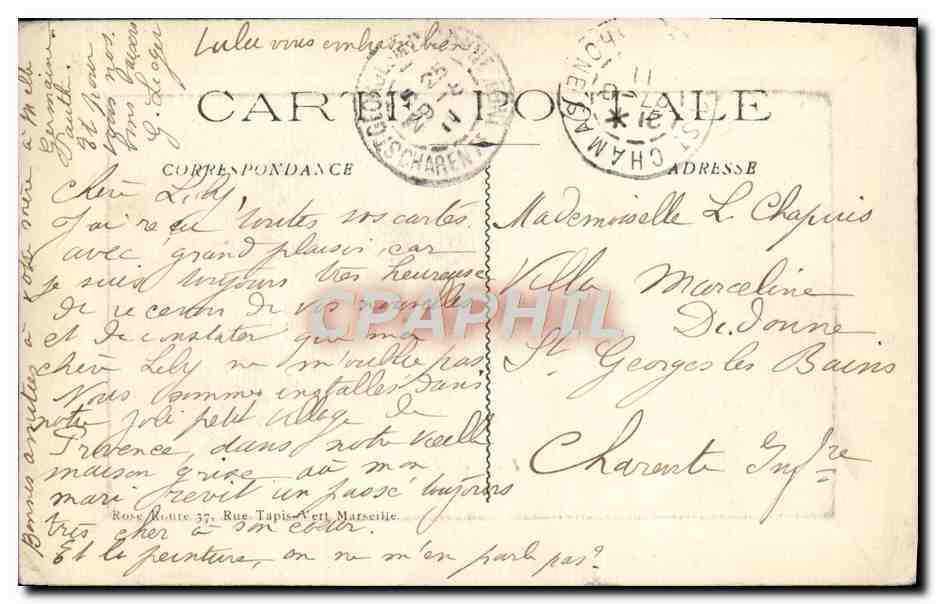 Lulu vous embrasse bien
CARTE POSTALE
CORRESPONDANCE
ADRESSE
Chère Lily,
J'ai reçu toutes vos cartes
avec grand plaisir car
je suis toujours très heureuse
de recevoir de vos nouvelles
et de constater que ma
chère Lily ne m'oublie pas
Nous sommes installés dans
notre joli petit village de
Provence, dans notre vieille
maison grise où mon
mari revit un passé toujours
très cher à son cœur.
Et la peinture, on ne m'en parle pas?
Mademoiselle L Chapuis
Villa Marceline
De. donne
St Georges les Bains
Charente Infre
Rose Route 37, Rue Tapis-Vert Marseille
Bonnes amitiés à votre mère à Melle
Germaine
et pour
vous nos
bons baisers
G.
ST CHAMAS
CHAREN
25
11
21
11
CPAPHIL